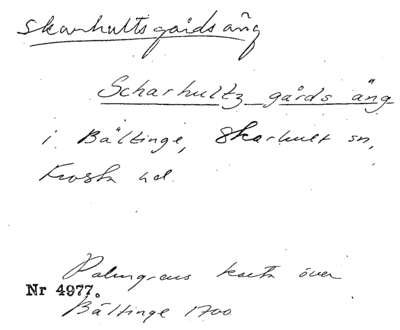 Skarhults gårds äng
Scharhultz gårds äng
i Bältinge, Skarhult sn,
Frosta hd.
Palmgrens karta över
Nr 4977.
Bältinge 1700